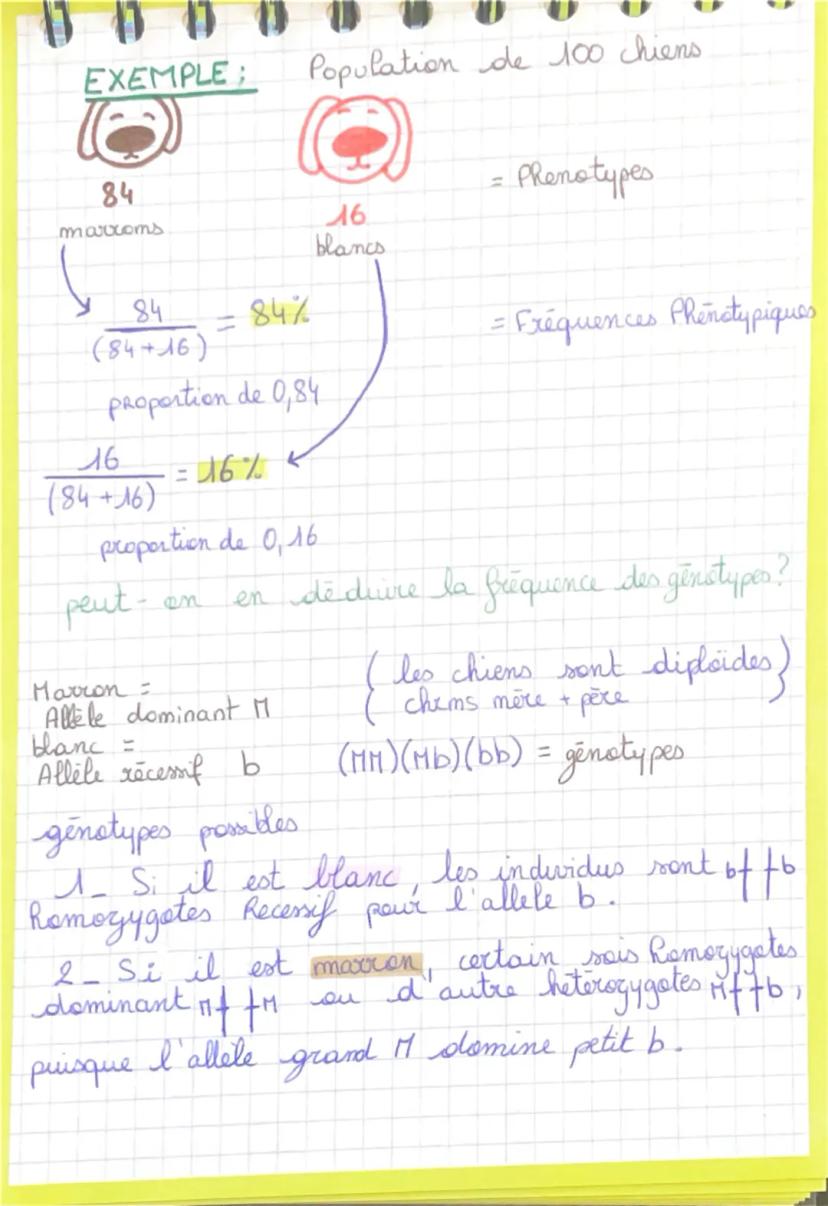 EXEMPLE : Population de 100 chiens
84
marrons
16
blancs
= Phenotypes
84 / (84+16) = 84%
= Fréquences Phénotypiques
proportion de 0,84
16 / (84+16) = 16%
proportion de 0,16
peut-on en déduire la fréquence des génotypes ?
Marron =
Allèle dominant M
blanc =
Allèle récessif b
( les chiens sont diploïdes )
( chrms mère + père )
(MM)(Mb)(bb) = génotypes
génotypes possibles
1_ Si il est blanc, les individus sont b b
homozygotes Recessif pour l'allele b.
2_ Si il est marron, certain sois homozygotes
dominant M M ou d'autre hétérozygotes M b,
puisque l'allèle grand M domine petit b.